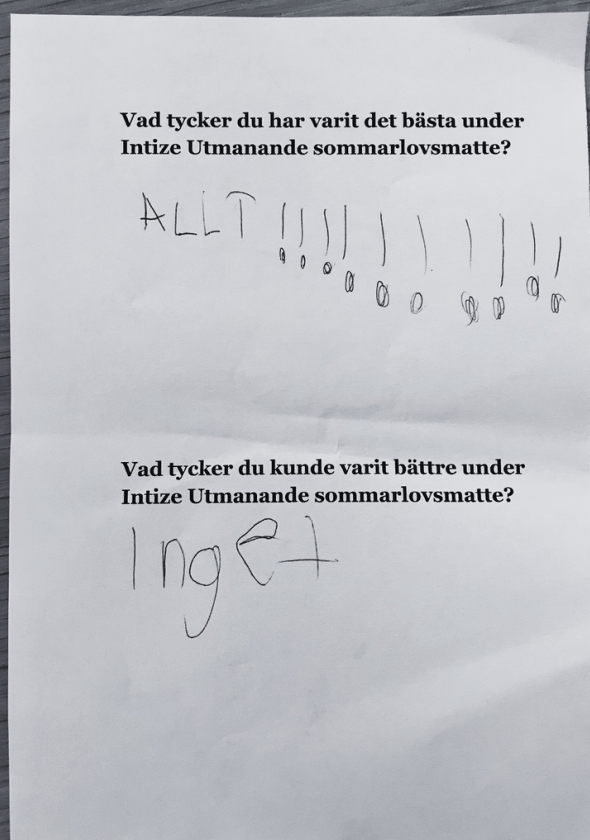 Vad tycker du har varit det bästa under
Intize Utmanande sommarlovsmatte?
ALLT !!!!!!!!!!
Vad tycker du kunde varit bättre under
Intize Utmanande sommarlovsmatte?
Inget